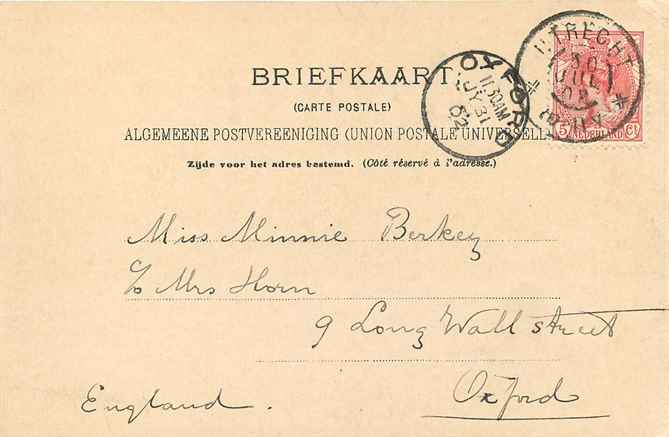 BRIEFKAART
(CARTE POSTALE)
ALGEMEENE POSTVEREENIGING (UNION POSTALE UNIVERSELLE)
Zijde voor het adres bestemd. (Côté réservé à l'adresse.)
OXFORD
11.30AM
JY 31
02
UTRECHT
30
JUL
02
5 NEDERLAND Ct
Miss Minnie Berkey
c/o Mrs Horn
9 Long Wall street
Oxford
England.